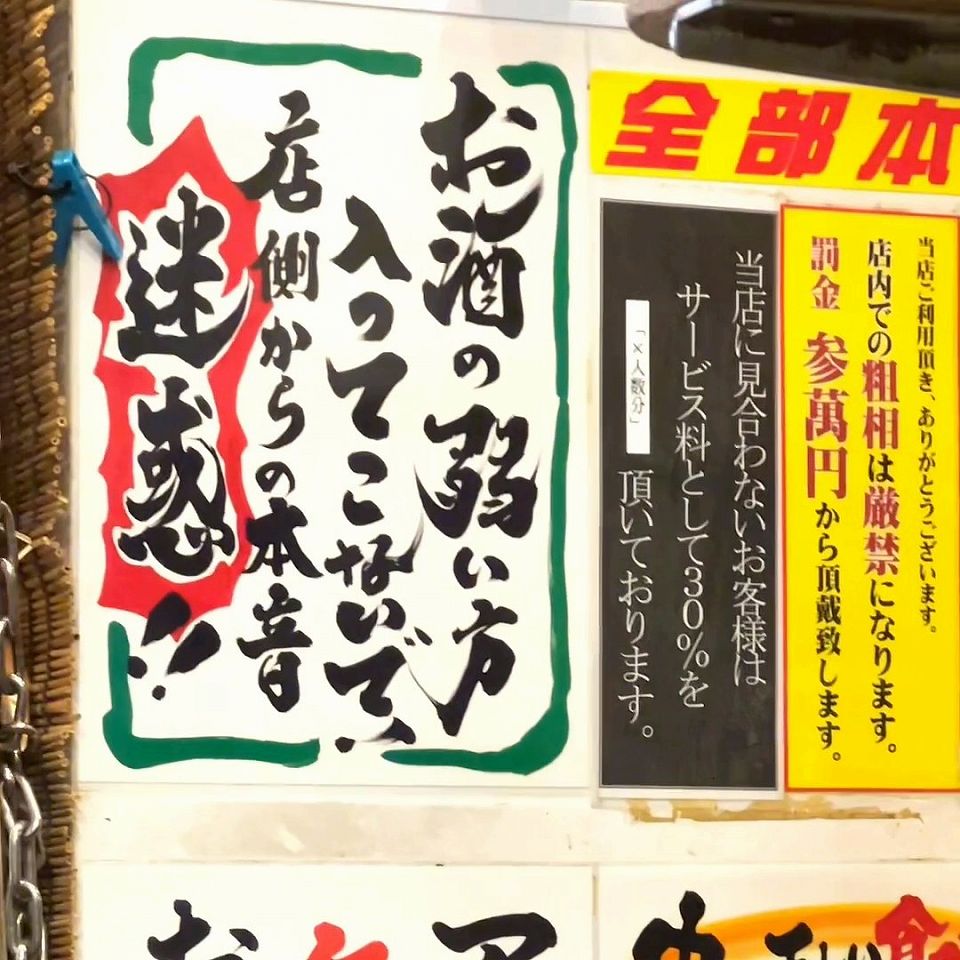 お酒の弱い方
入ってこないで、
店側からの本音
迷惑!!
全部本
当店ご利用頂き、ありがとうございます。
店内での粗相は厳禁になります。
罰金 参萬円から頂戴致します。
当店に見合わないお客様は
サービス料として30%を
「×人数分」頂いております。